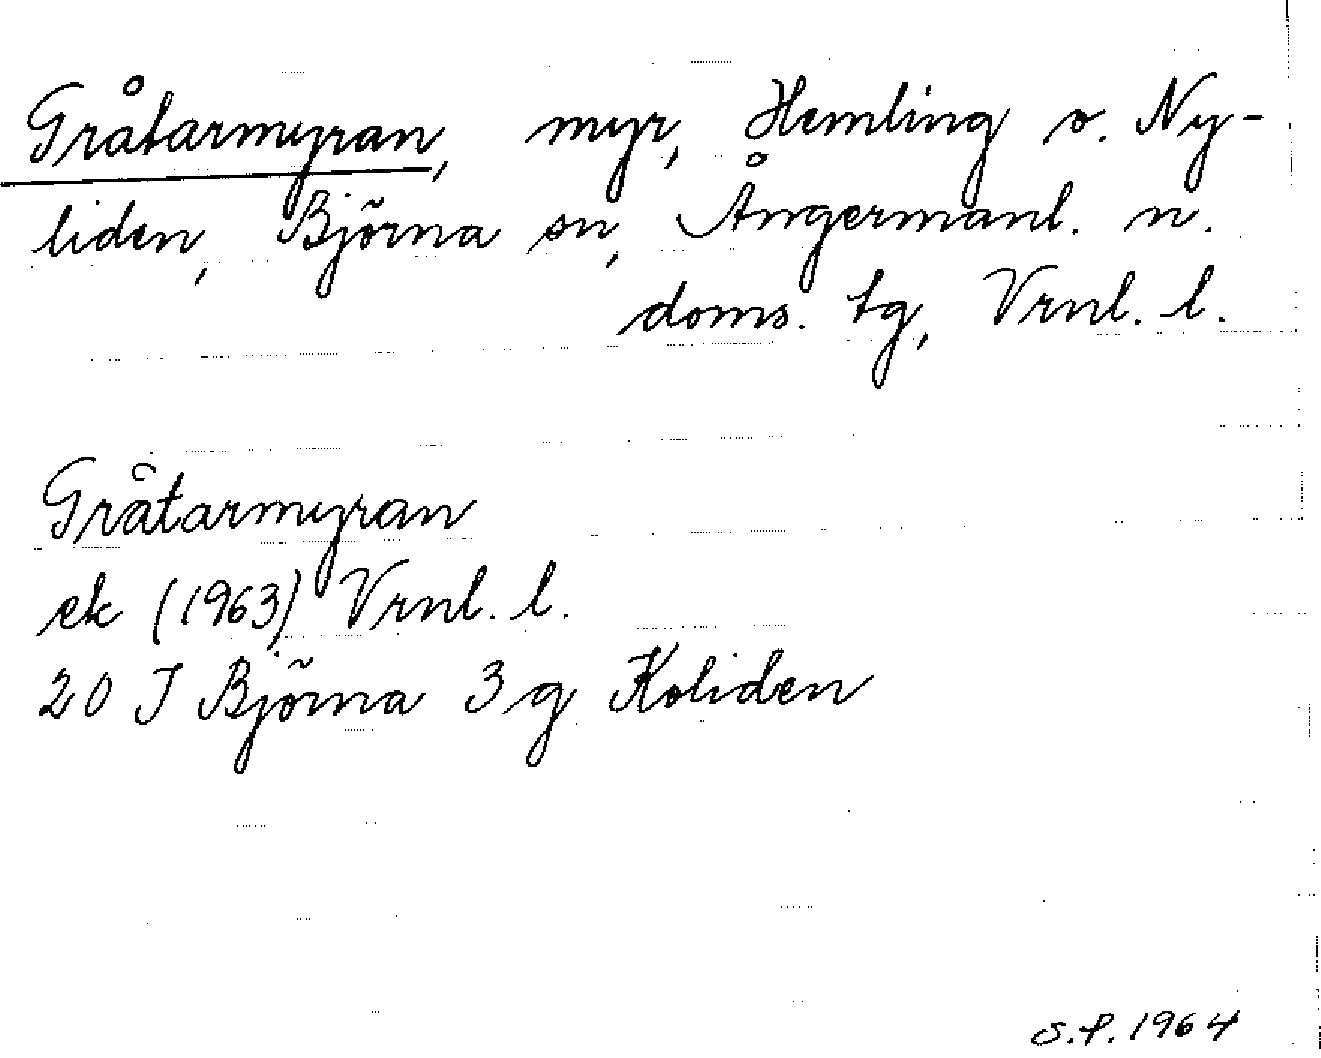 Gråtarmyran, myr, Hemling o. Ny-
liden, Björna sn, Ångermanl. n.
doms. tg, Vrnl. l.
Gråtarmyran
ek (1963) Vrnl. l.
20 J Björna 3g Koliden
S.P. 1964